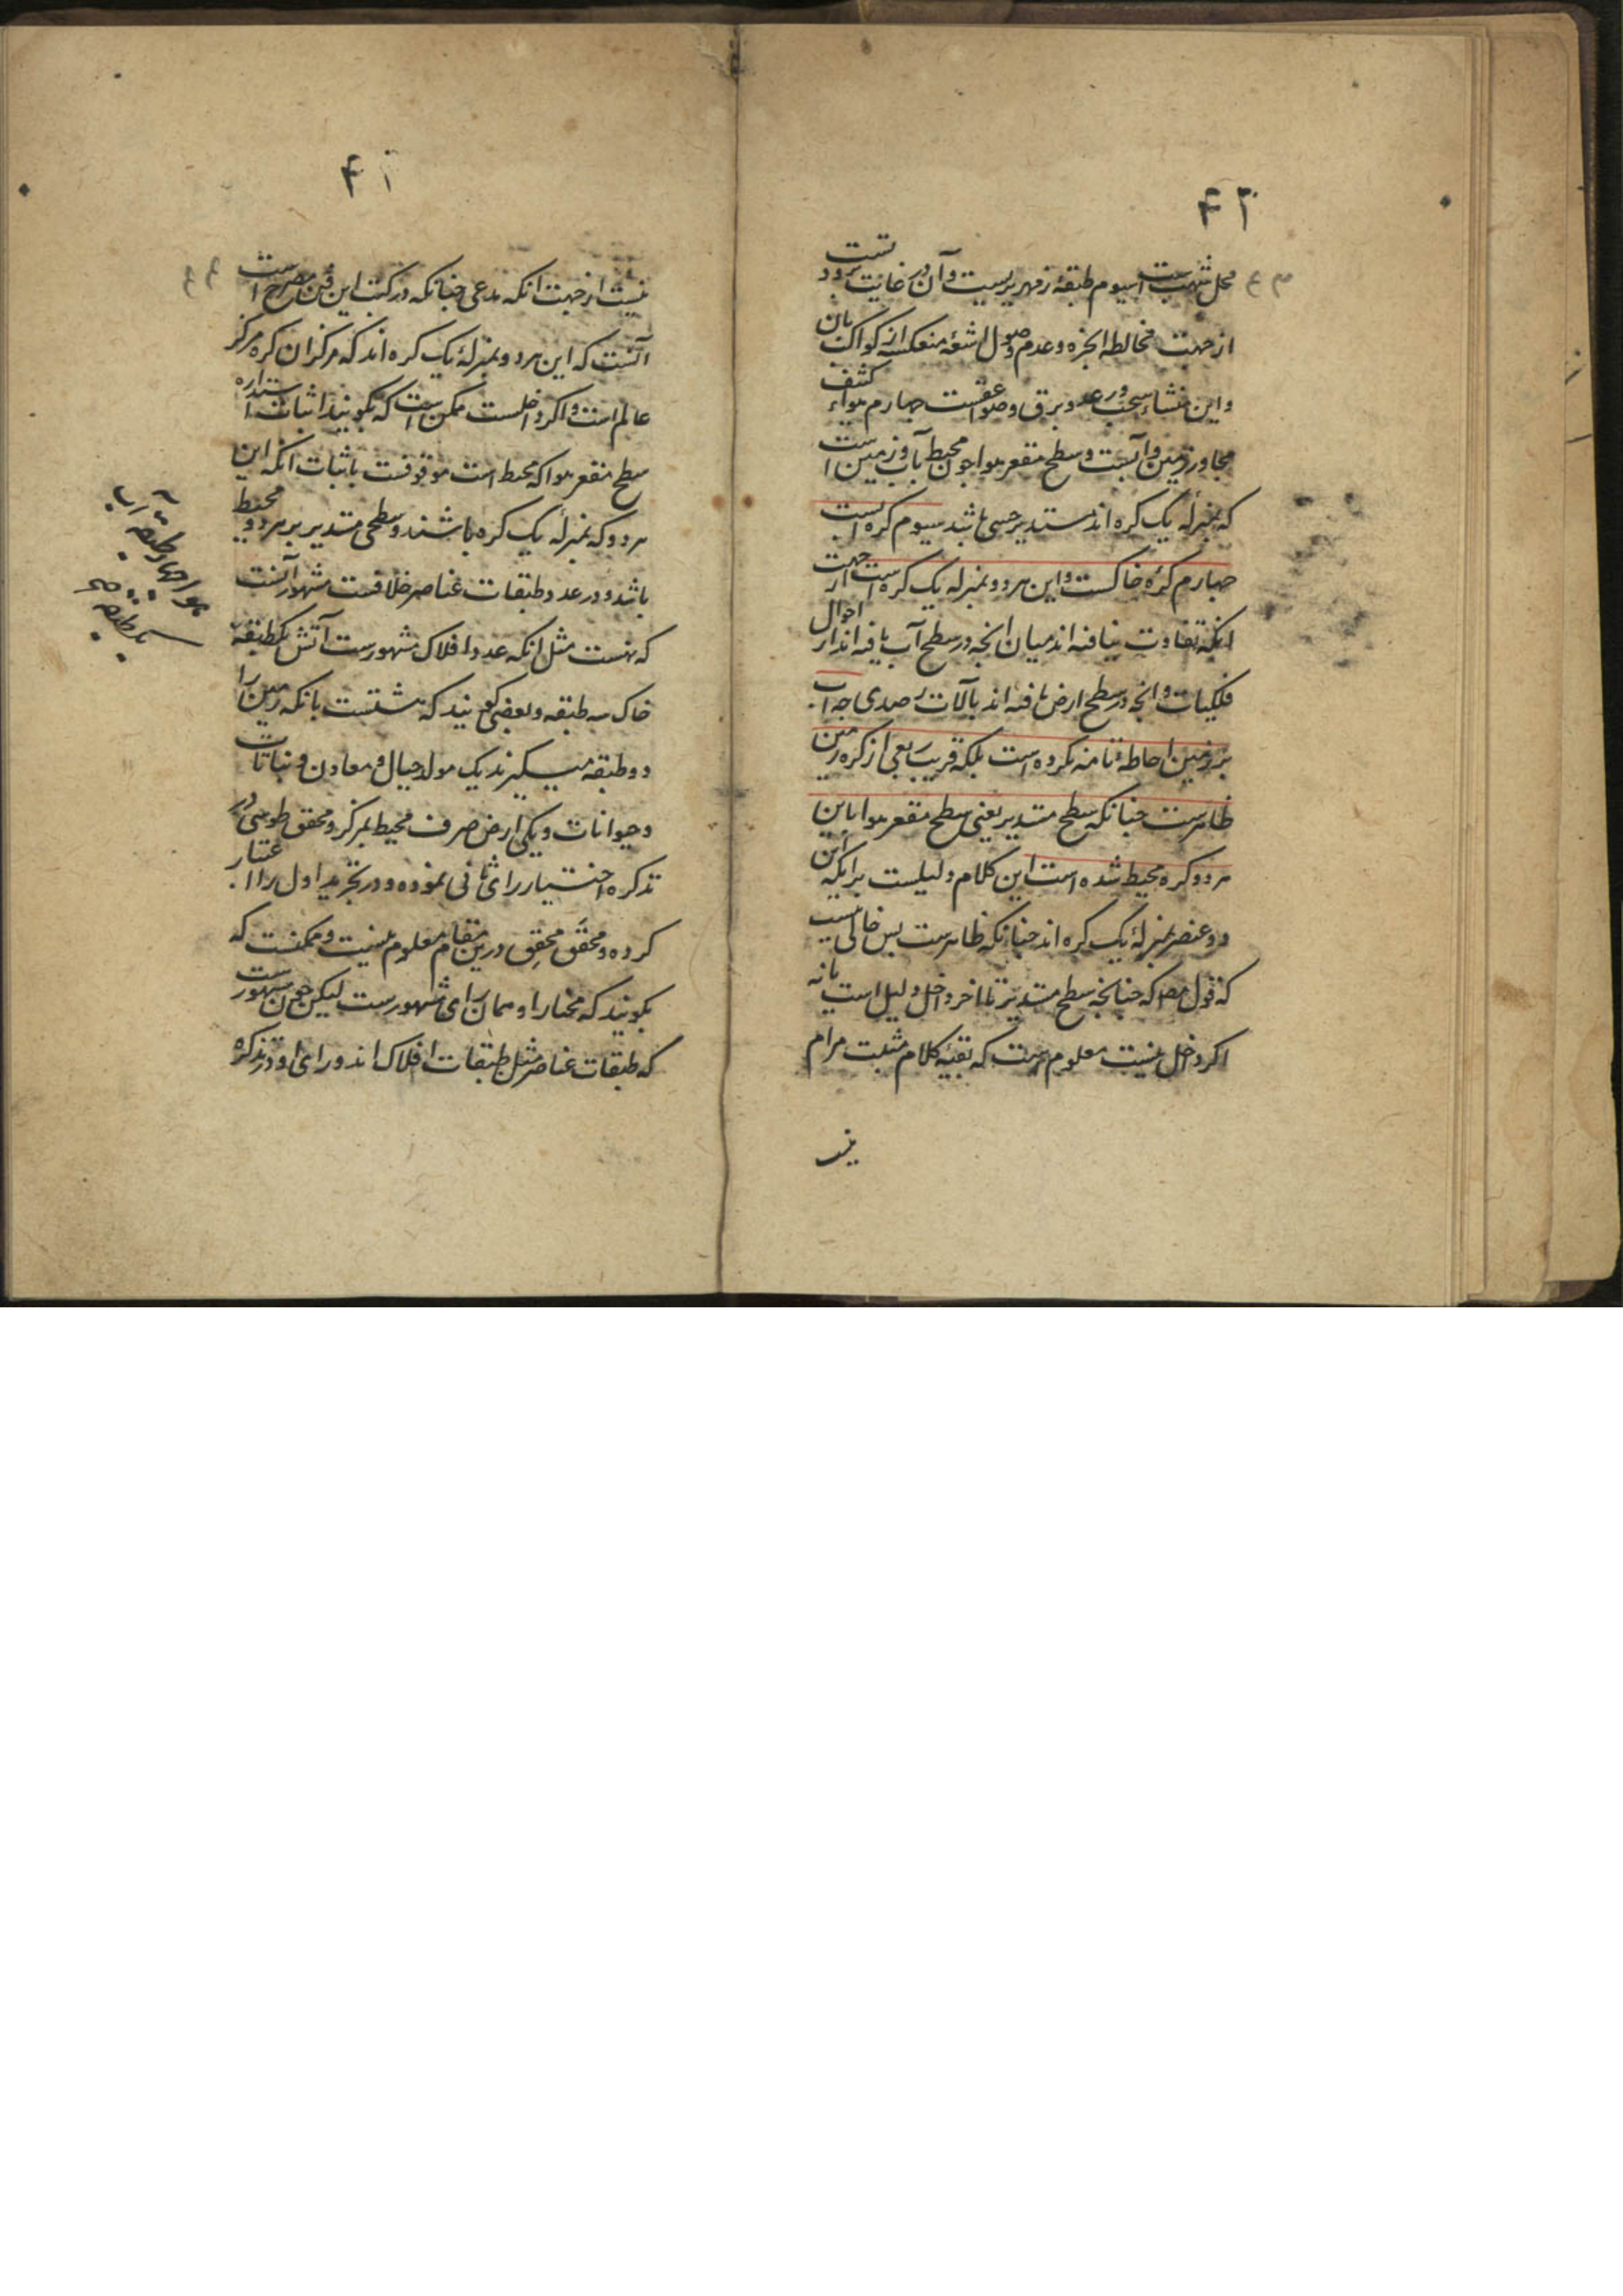 ۴۲
محل شهبست سیوم طبقهٔ زمهریریست و آن در غایت برودتست
از جهت مخالطه ابخره و عدم وصول اشعهٔ منعکسه از کواکب بان
و این منشاء سحب و رعد و برق و صواعقست چهارم هواء کثیف
مجاور زمین و آبست و سطح مقعر هوا چون محیط باب و زمین است
که بمنزلهٔ یک کره اند مستدیر حسی باشد سیوم کره آبست
چهارم کرهٔ خاکست و این هر دو بمنزله یک کره است از جهت
آنکه تفاوت نیافته اند میان انچه در سطح آب یافته اند از احوال
فلکیات و انچه در سطح ارض یافته اند بآلات رصدی چه آب
بر زمین احاطهٔ تامه نکرده است بلکه قریب ربعی از کره زمین
ظاهرست چنانکه سطح مستدیر یعنی سطح مقعر هوا باین
هر دو کره محیط شده است این کلام دلیلست برانکه این
دو عنصر بمنزلهٔ یک کره اند چنانکه ظاهرست پس خالی نیست
که قول مصـ که چنانچه سطح مستدیر تا آخر داخل دلیل است یا نه
اکر داخل نیست معلوم هست که بقیهٔ کلام مثبت مرام
نیست
۴۱
نیست از جهت انکه مدعی چنانکه در کتب این فن مصرح است
آنست که این هر دو بمنزلهٔ یک کره اند که مرکز ان کره مرکز
عالم است و اکر داخلست ممکن است که بکویند اثبات استداره
سطح مقعر هوا که محیط است موقوفست باثبات انکه این
هر دو که بمنزلهٔ یک کره باشند و سطحی مستدیر بر هر دو محیط
باشد و در عدد طبقات عناصر خلافست مشهور آنست
که نهست مثل انکه عدد افلاک مشهورست آتش یکطبقه
خاک سه طبقه و بعضی کویند که هشتست بانکه زمین را
دو طبقه میکیرند یک مولد جبال و معادن و نباتات
و حیوانات و یکی ارض صرف محیط بمرکز و محقق طوسی در
تذکره اختیار رای ثانی نموده و در تجرید اول را اعتبار
کرده و محقق محقق درین مقام معلوم نیست و ممکنست که
بکویند که مختار او همان رای مشهورست لیکن چون مشهورست
که طبقات عناصر مثل طبقات افلاک اند و رای او در تذکره
هوا چهار طبقه آب
یکطبقه